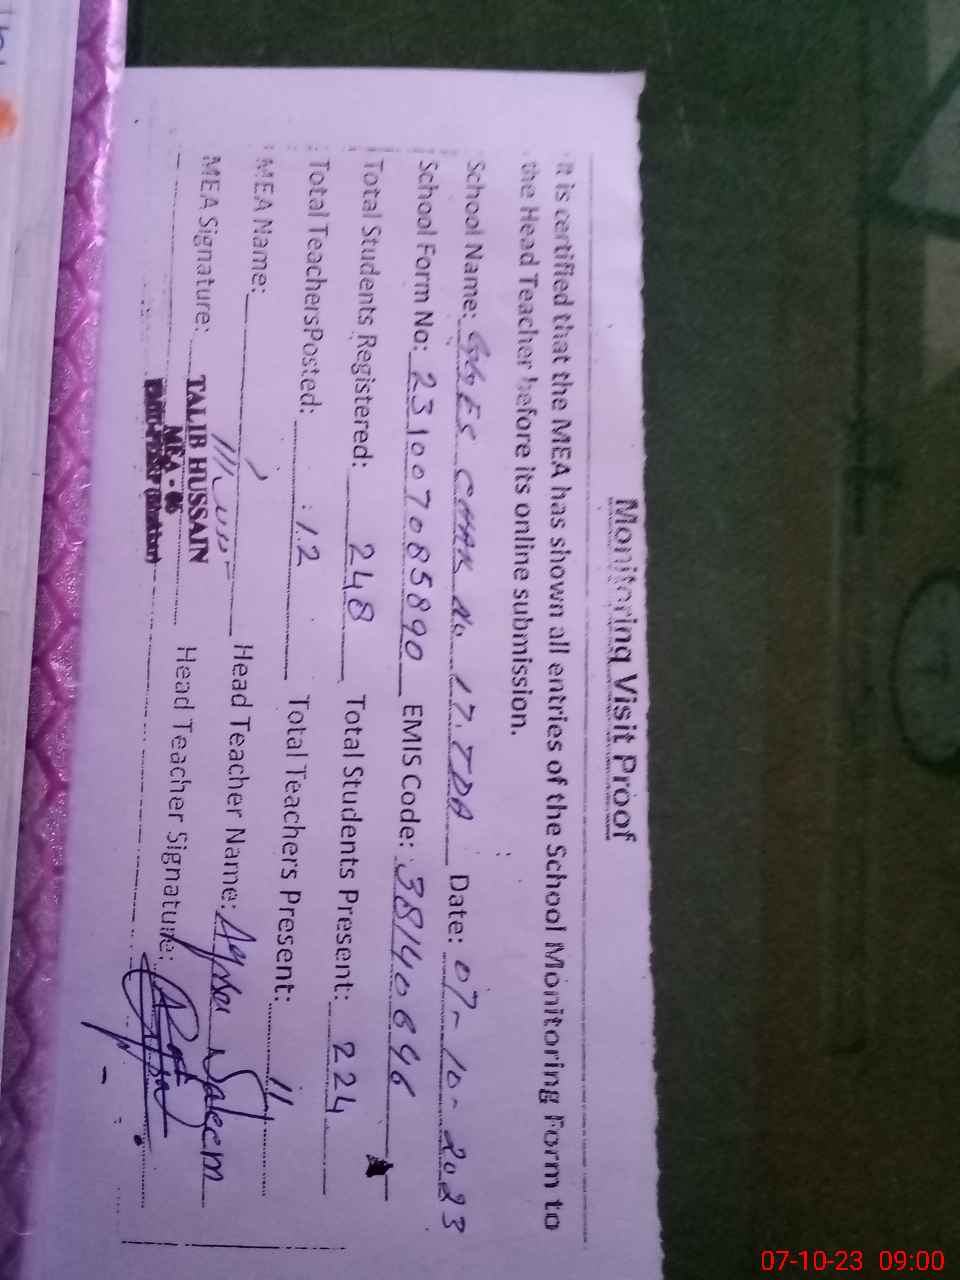 Monitoring Visit Proof
It is certified that the MEA has shown all entries of the School Monitoring Form to
the Head Teacher before its online submission.
School Name: GGES CHAK No 17.TDA Date: 07-10-2023
School Form No: 231007085890 EMIS Code: 38140646
Total Students Registered: 248 Total Students Present: 224
Total TeachersPosted: 12 Total Teachers Present: 11
MEA Name: Head Teacher Name: Aqsa Saleem
MEA Signature: Head Teacher Signature:
TALIB HUSSAIN
MEA - 06
07-10-23 09:00